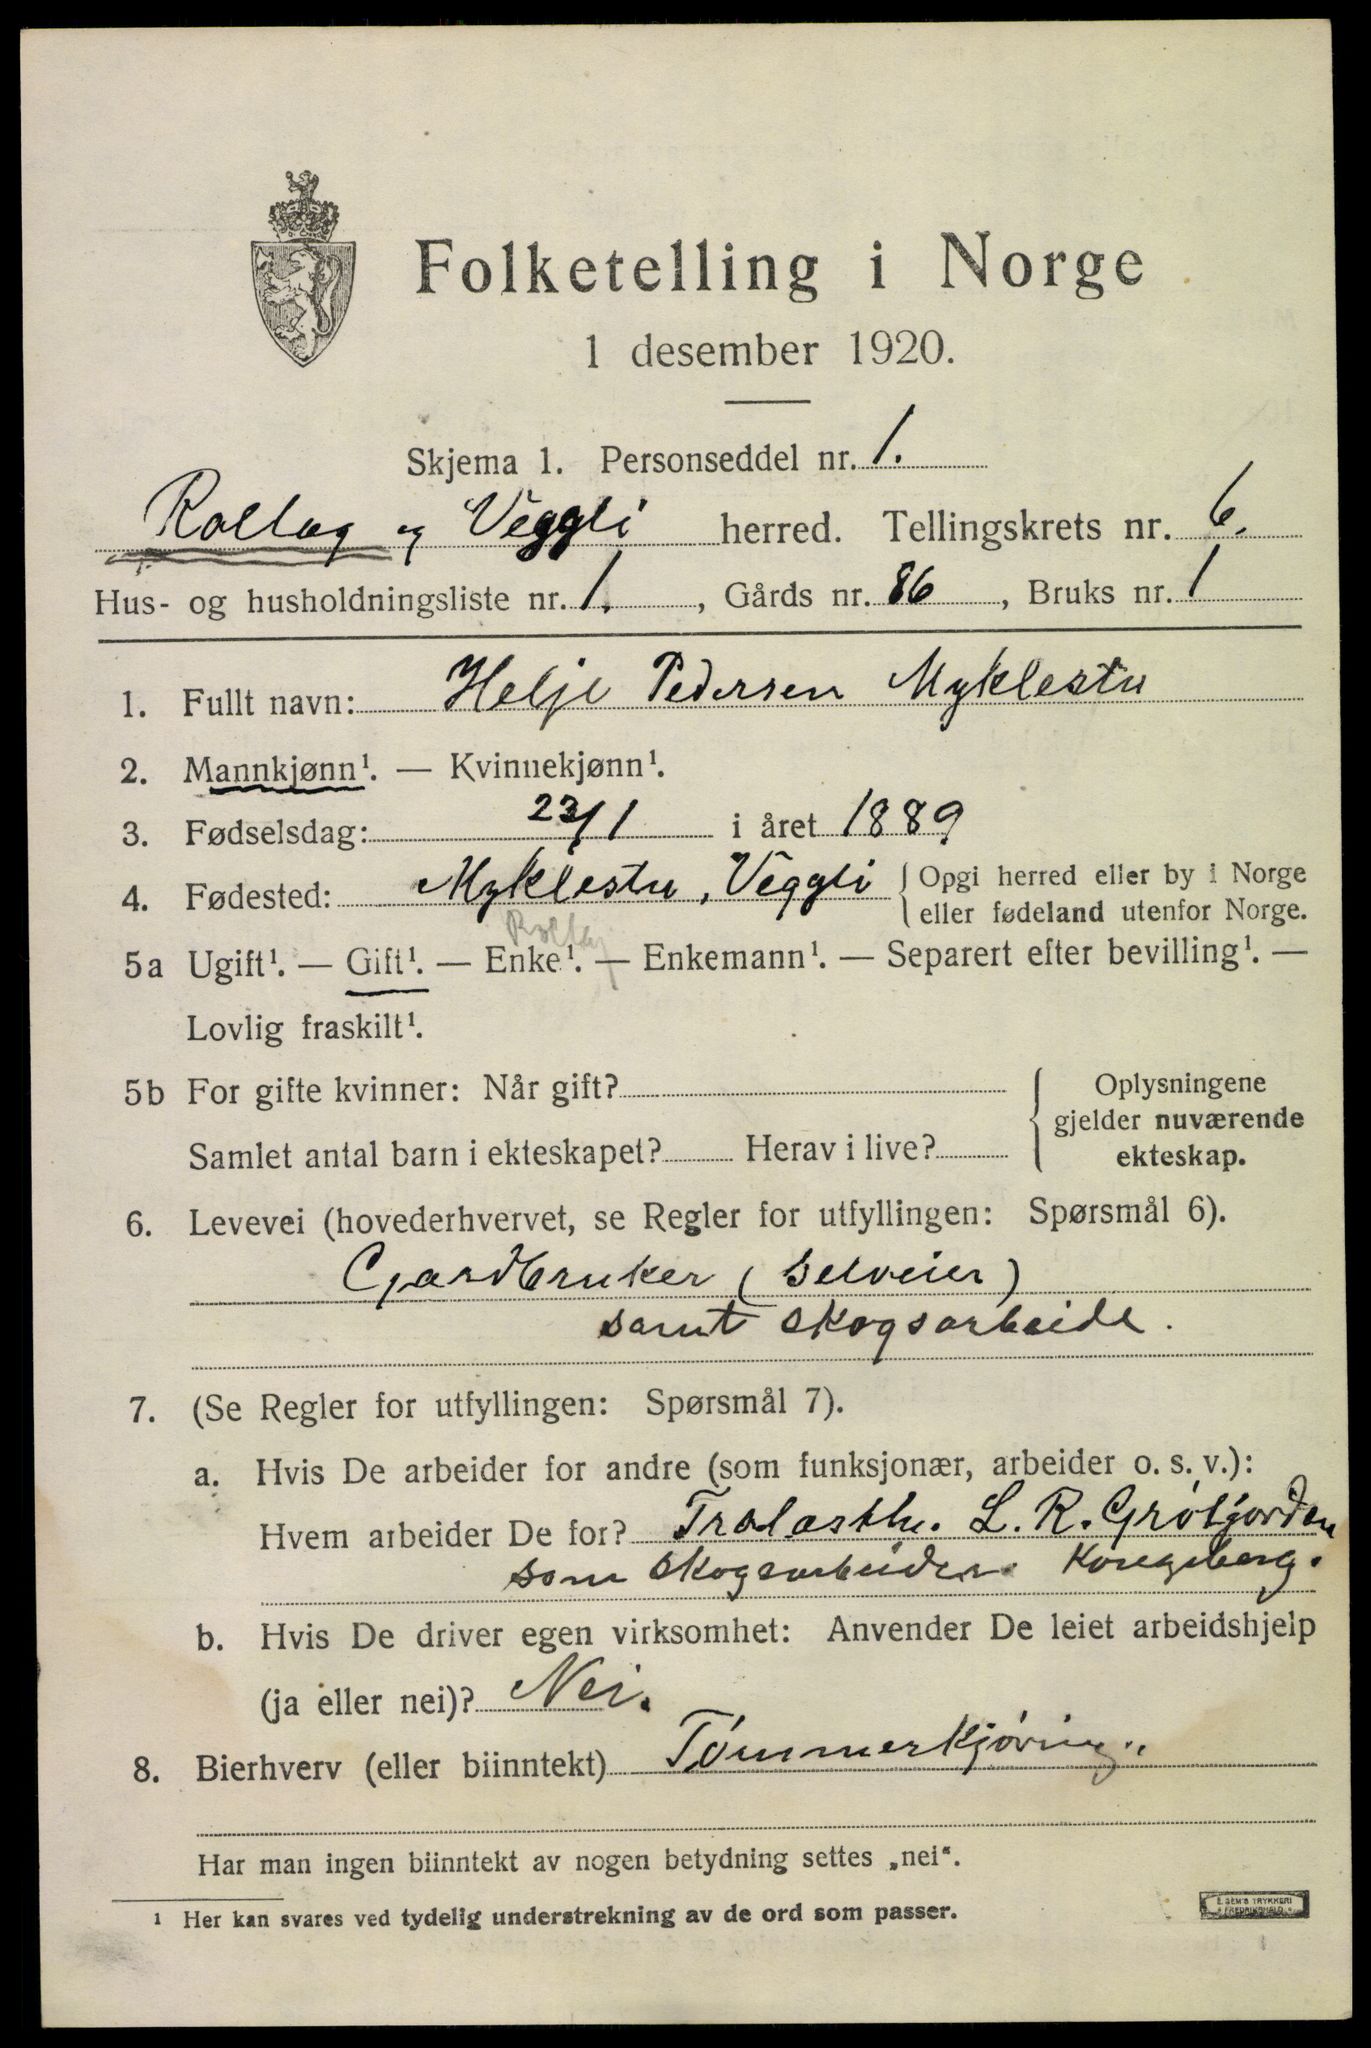 Folketelling i Norge
1 desember 1920.
Skjema 1. Personseddel nr. 1.
Rollag og Veggli herred. Tellingskrets nr. 6.
Hus- og husholdningsliste nr. 1., Gårds nr. 86, Bruks nr. 1
1. Fullt navn: Helje Pedersen Myklestu
2. Mannkjønn¹. — Kvinnekjønn¹.
3. Fødselsdag: 23/1 i året 1889
4. Fødested: Myklestu, Veggli { Opgi herred eller by i Norge
eller fødeland utenfor Norge.
Rollag
5a Ugift¹. — Gift¹. — Enke¹. — Enkemann¹. — Separert efter bevilling¹. —
Lovlig fraskilt¹.
5b For gifte kvinner: Når gift? { Oplysningene
gjelder nuværende
Samlet antal barn i ekteskapet? Herav i live? ekteskap.
6. Levevei (hovederhvervet, se Regler for utfyllingen: Spørsmål 6).
Gardbruker (selveier)
samt skogsarbeide.
7. (Se Regler for utfyllingen: Spørsmål 7).
a. Hvis De arbeider for andre (som funksjonær, arbeider o. s. v.):
Hvem arbeider De for? Tralasth. L. R. Grøtjorden
som skogsarbeider. Kongsberg.
b. Hvis De driver egen virksomhet: Anvender De leiet arbeidshjelp
(ja eller nei)? Nei.
8. Bierhverv (eller biinntekt) Tømmerkjøring.
Har man ingen biinntekt av nogen betydning settes „nei“.
¹ Her kan svares ved tydelig understrekning av de ord som passer.
E. SEM'S TRYKKERI
FREDRIKSHALD